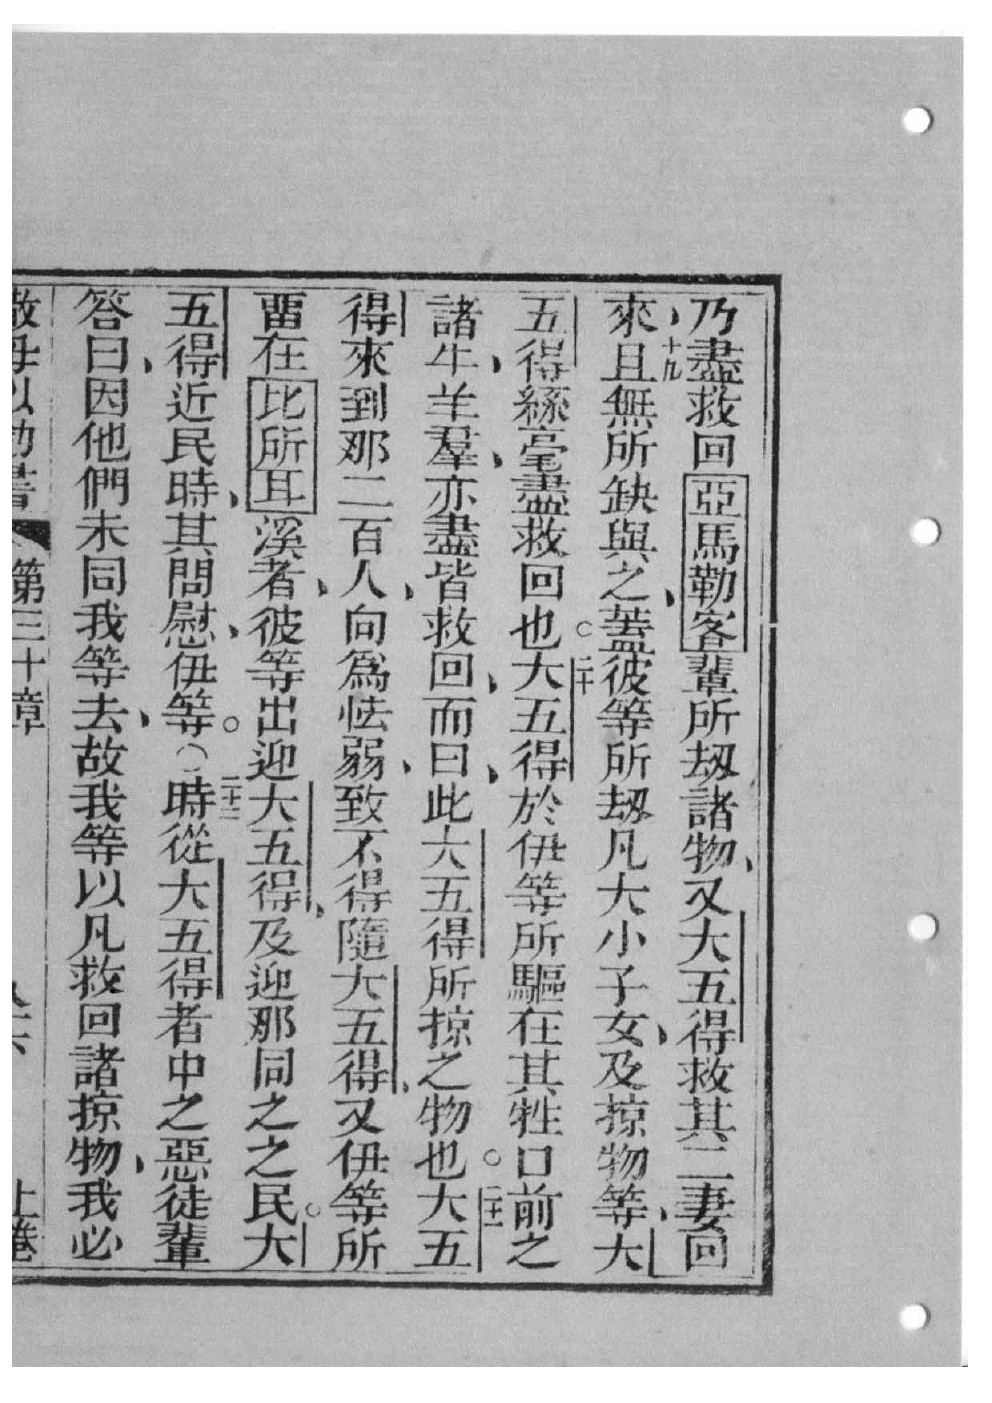 乃盡救回亞馬勒客輩所刼諸物、又大五得救其二妻回
來、十九且無所缺與之、蓋彼等所刼凡大小子女、及掠物等、大
五得絲毫盡救回也○二十大五得於伊等所驅在其牲口前之
諸牛、羊羣、亦盡皆救回、而曰、此大五得所掠之物也○二十一大五
得來到那二百人、向爲怯弱、致不得隨大五得、又伊等所
畱在比所耳溪者、彼等出迎大五得、及迎那同之之民○大
五得近民時、其問慰、伊等○（）二十二時從大五得者中之惡徒輩
答曰、因他們未同我等去、故我等以凡救回諸掠物、我必
撒母以勒書 第三十章 上卷